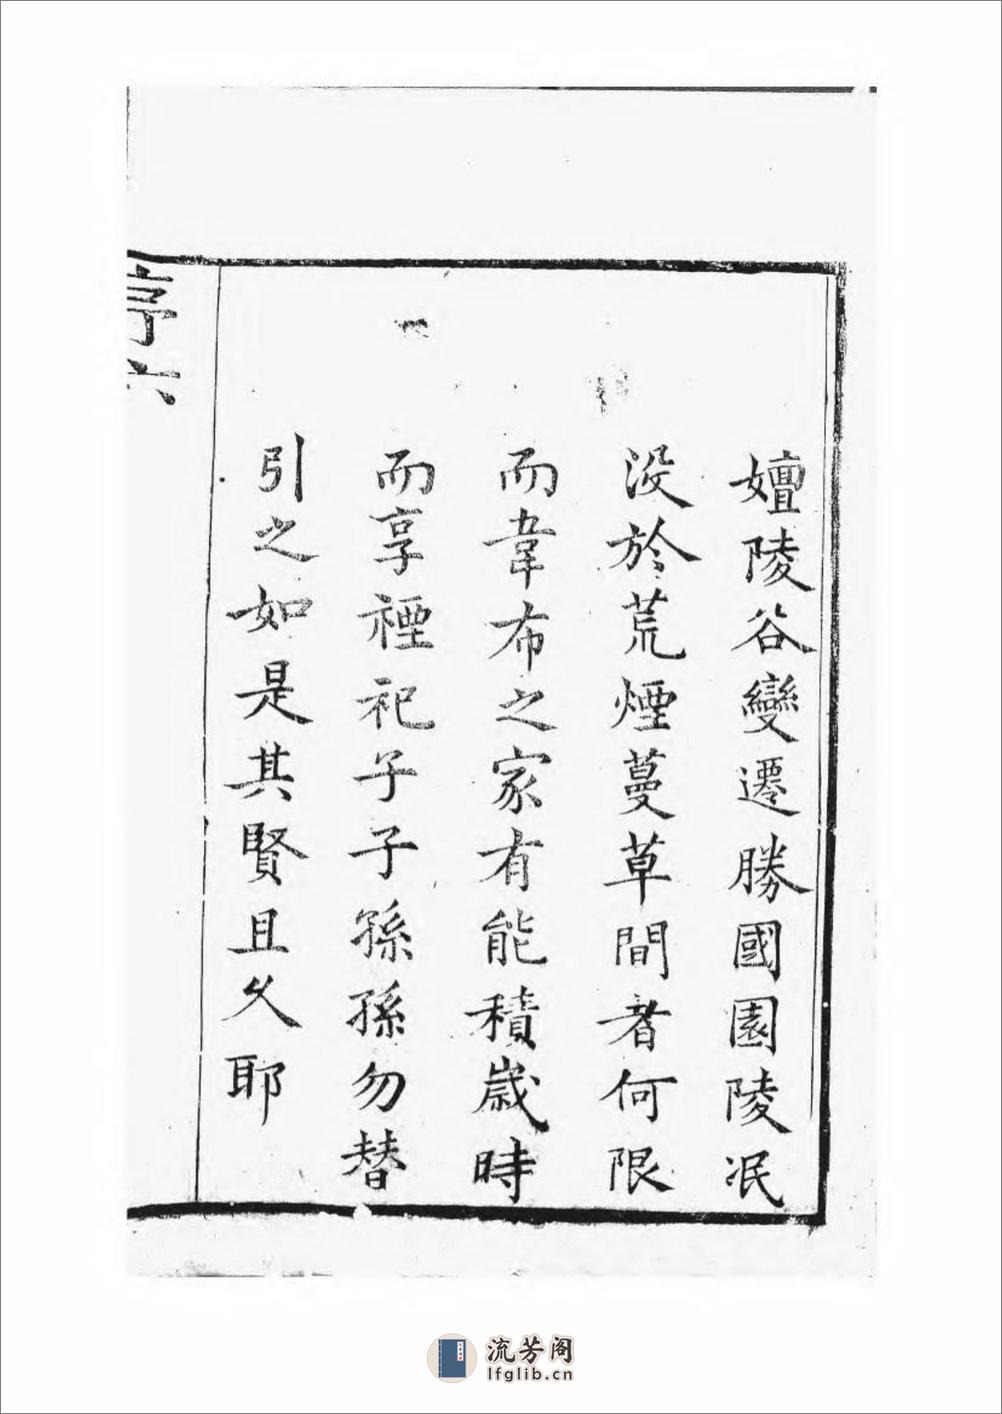 嬗陵谷變遷勝國園陵泯
没於荒煙蔓草間者何限
而韋布之家有能積歲時
而享禋祀子子孫孫勿替
引之如是其賢且久耶
序六
流芳阁
lfglib.cn